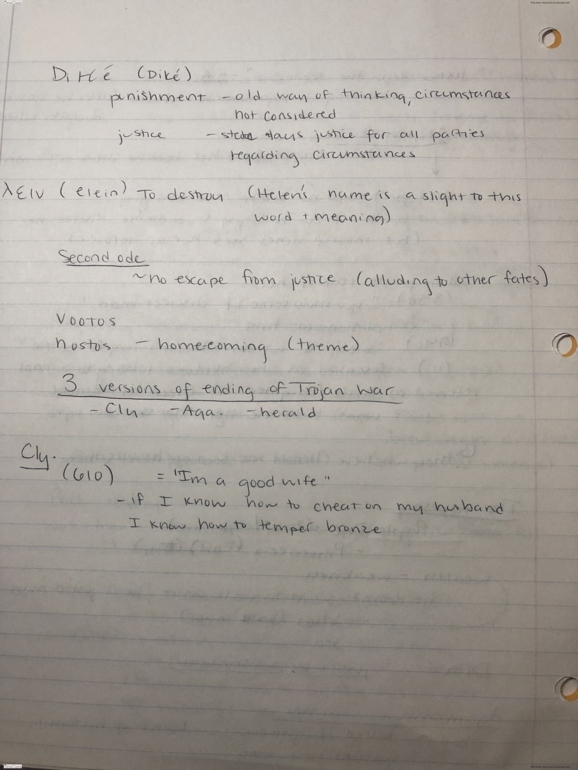 Diké (Diké)
punishment - old way of thinking, circumstances
not considered
justice - days justice for all parties
regarding circumstances
λειν (elein) To destroy (Helen's name is a slight to this
word + meaning)
Second ode
~no escape from justice (alluding to other fates)
Vootos
nostos - homecoming (theme)
3 versions of ending of Trojan War
- Cly - Aga. - herald
Cly.
(610) = "I'm a good wife"
- if I know how to cheat on my husband
I know how to temper bronze